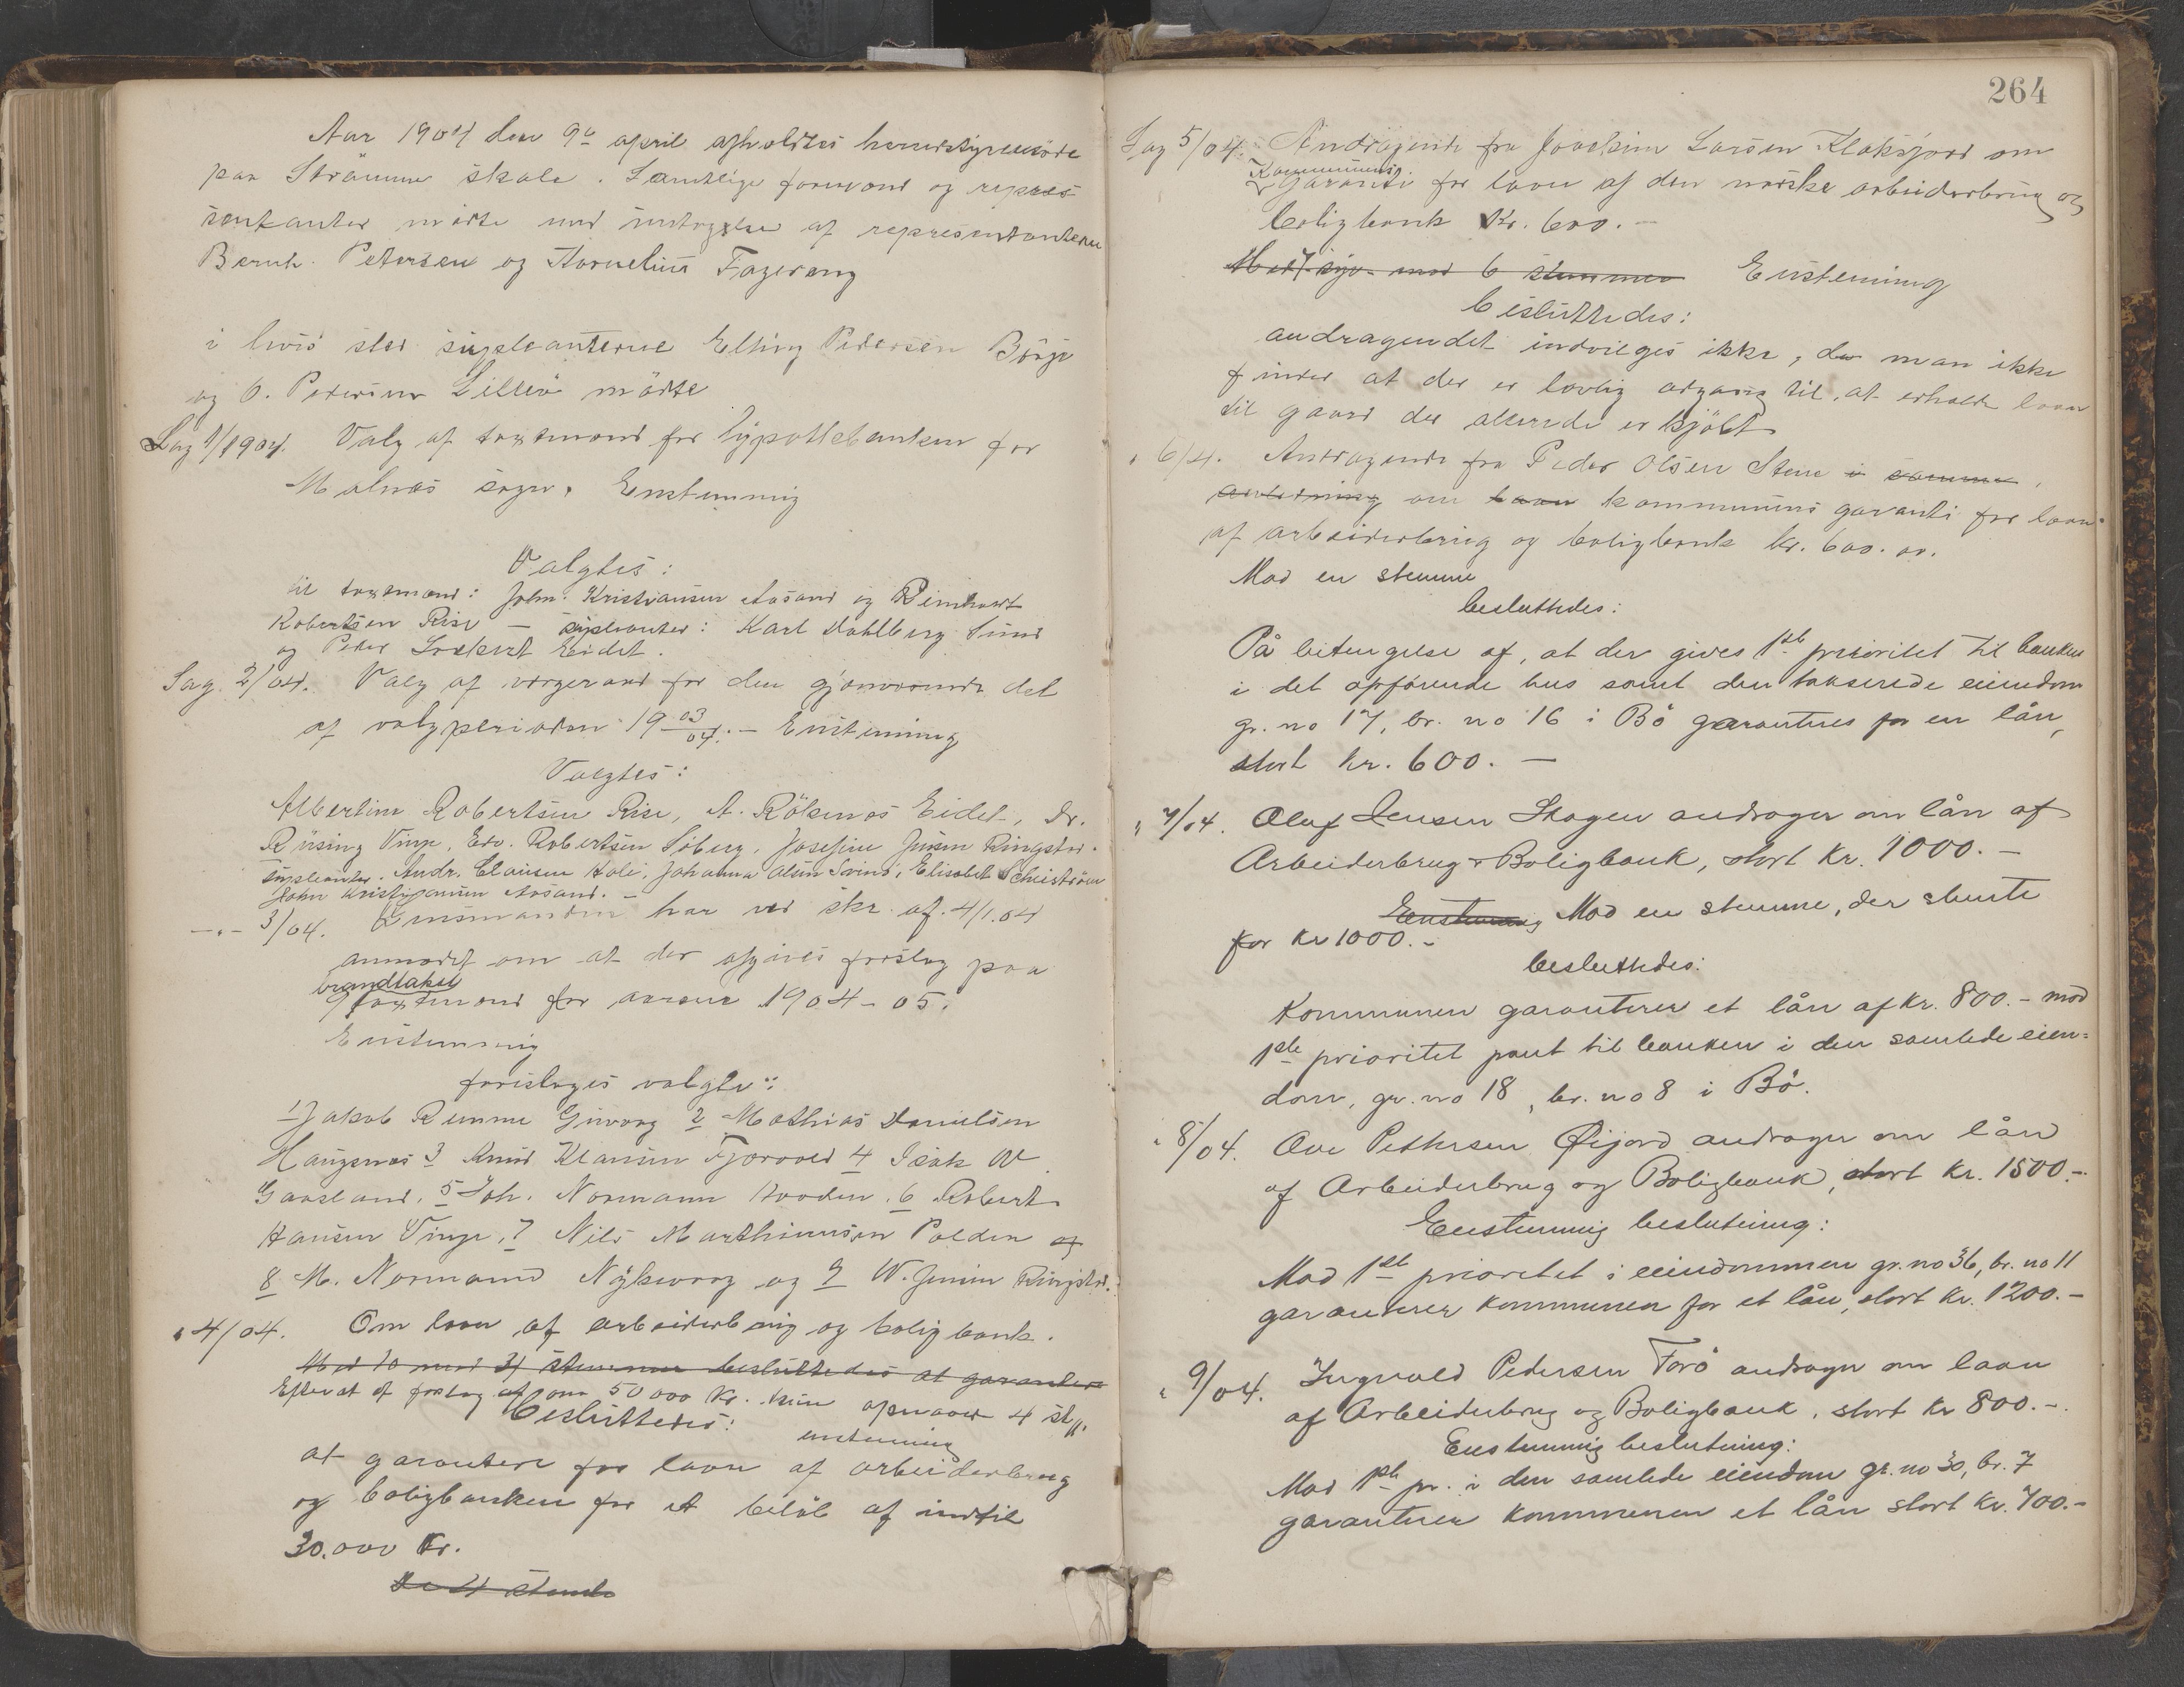 Aar 1904 den 9de april afholdtes herredstyremöde
paa Strömme skole. Samtlige formænd og repræs
sentanter mödte med undtagelse af repræsentanterne
Bernh. Petersen og Kornelius Fagereng
i hvis sted supleanterne Elling Pedersen Börge
og O. Pedersen Lilleö mödte
Sag 1/1904. Valg af taxtmænd for hypothebanken for
Malnes sogn. Enstemmig
Valgtes:
til taxtmænd: John. Kristiansen Aasand og Reinhart
Robertsen Rise — supleanter: Karl Dahlberg Sund
og Peder Lockert Eidet.
Sag. 2/04. Valg af værgeraad for den gjenværende del
af valgperioden 19 03/04. – Enstemmig
Valgtes:
Albertine Robertsen Rise, A. Röksnes Eidet, Dr.
Rüsing Vinje, Edv. Robertsen Söberg, Josefine Jensen Ringstad.
supleanter. Andr. Clausen Hole, Johanna Olsen Svind, Elisabet Scheiström
John Kristjansen Aasand. –
–„– 3/04. Lensmanden har ved skr. af 4/1.04
anmodet om at der afgives forslag paa
brandtakst
9 taxtmænd for aarene 1904–05.
Enstemmig
foresloges valgte:
1 Jakob Remme Guvaag 2 Mathias Danielsen
Haugsnes 3 Knud Klausen Fjærvold 4 Isak W
Gaasland, 5 Joh. Normann Hovden. 6 Robert
Hansen Vinje, 7 Nils Marthinusen Polden og
8 M. Normand Nykvaag og 9 W. Jensen Ringstad.
„ 4/04. Om laan af arbeiderbrug og boligbank.
Med 10 mod 3 stemmer besluttedes at garantere
Efterat et forslag om 50000 Kr. kun opnaaed 4 st.
besluttedes: enstemmig
at garantere for laan af arbeiderbrug
og boligbanken for et beløb af indtil
30.000 Kr.
De 4 stemte
264
Sag 5/04. Andragende fra Joackim Larsen Klaksjord om
Kommunens
garanti for laan af den norske arbeiderbrug og
boligbank Kr. 600. –
Med 7 sju mod 6 stemmer Enstemmig
besluttedes:
andragendet indvilges ikke, da man ikke
finder at der er lovlig adgang til, at erholde laan
til gaard der allerede er kjöbt
„ 6/4. Andragende fra Peder Olsen Steine i samme
anledning om laan kommunens garanti for laan
af arbeiderbrug og boligbank kr. 600.00.
Mod en stemme
besluttedes:
På betingelse af, at der gives 1ste prioritet til banken
i det opförende hus samt den takserede eiendom
gr. no 17, br. no 16 i Bö garanteres for en lån,
stort kr. 600. –
„ 7/04. Olaf Jensen Skagen andrager om lån af
Arbeiderbrug & Boligbank, stort Kr. 1000. –
Enstemmig Mod en stemme, der stemte
for Kr 1000. –
besluttedes:
Kommunen garanterer et lån af Kr. 800. – mod
1ste prioritet pant til banken i den samlede eien=
dom, gr. no 18, br. no 8 i Bö.
„ 8/04. Ove Pettersen Øijord andrager om lån
af Arbeiderbrug og Boligbank, stort Kr. 1500. –
Enstemmig beslutning:
Mod 1ste prioritet i eiendommen gr. no 36, br. no 11
garanterer kommunen for et lån, stort Kr. 1200. –
„ 9/04. Ingvald Pedersen Forö andrager om laan
af Arbeiderbrug og Boligbank, stort Kr 800. –
Enstemmig beslutning:
Mod 1ste pr. i den samlede eiendom gr. no 30, br. 7
garanterer kommunen et lån stort Kr. 700. –